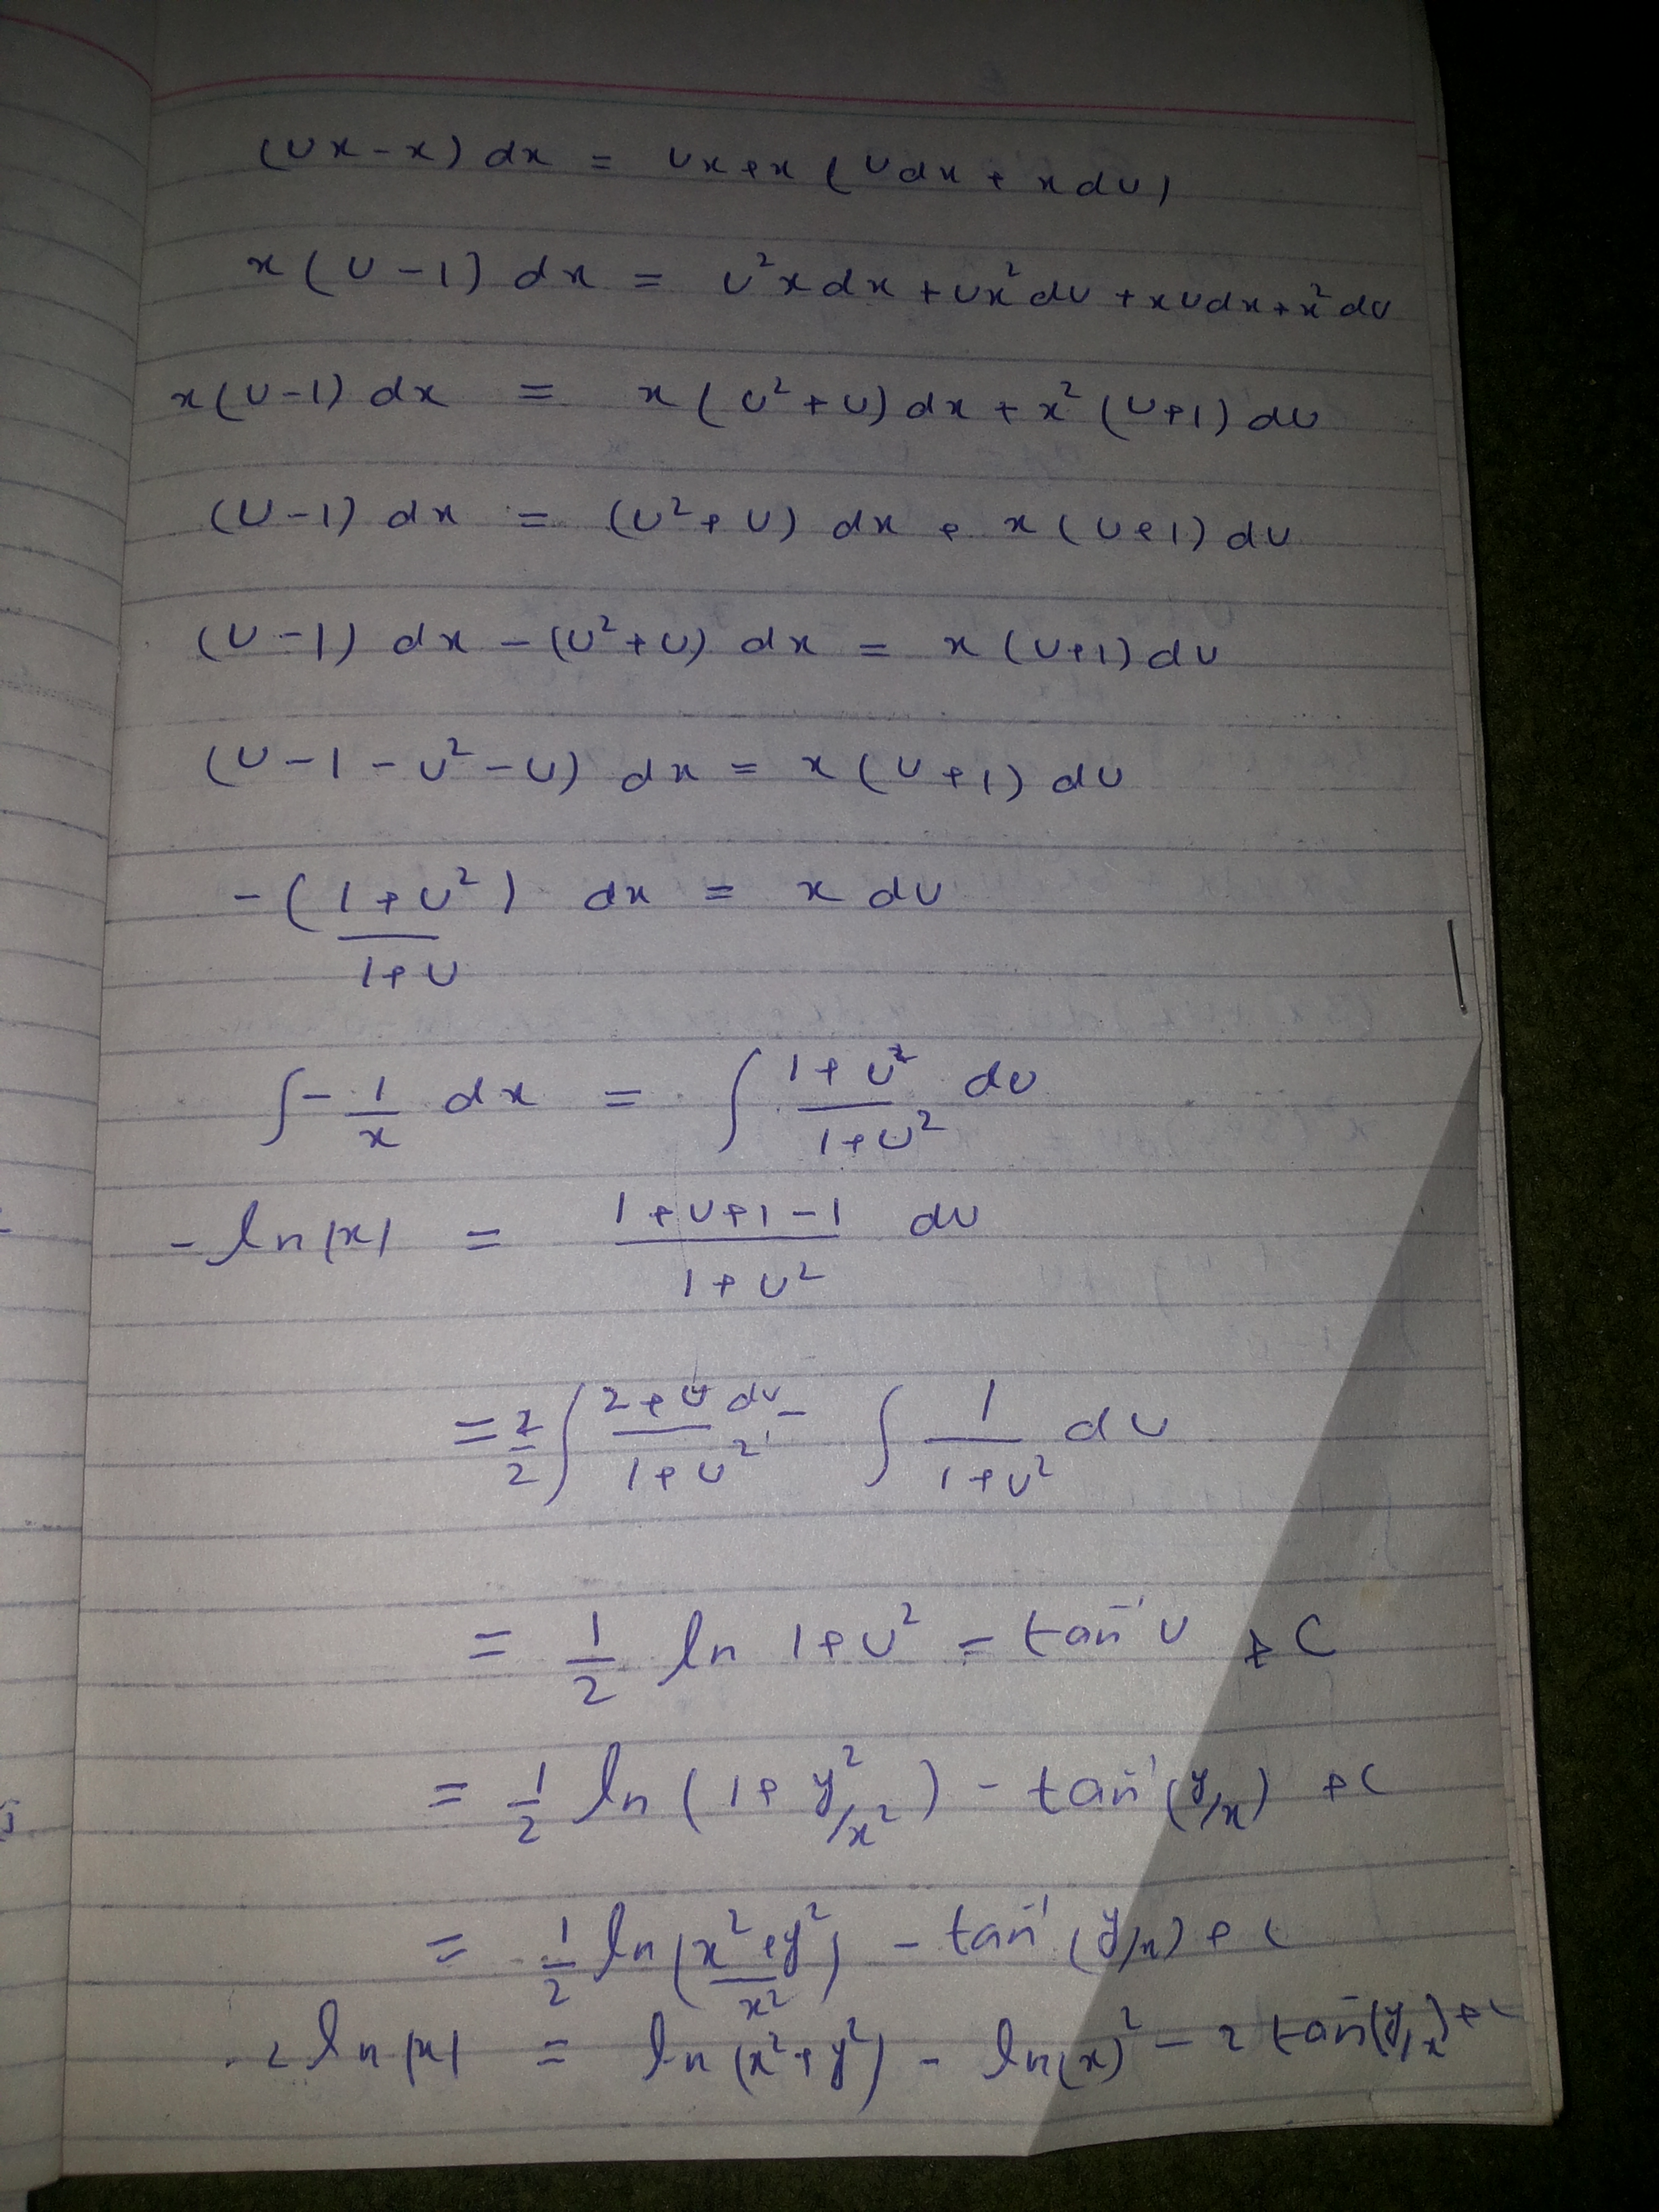 (Ux-x) dx = Ux+x (Udx + xdU)
x(U-1) dx = U²xdx + Ux²dU + xUdx + x²dU
x(U-1) dx = x(U²+U) dx + x²(U+1) dU
(U-1) dx = (U²+U) dx + x(U+1) dU
(U-1) dx - (U²+U) dx = x(U+1) dU
(U-1-U²-U) dx = x(U+1) dU
-(1+U²)/(1+U) dx = x dU
∫-1/x dx = ∫ (1+U²)/(1+U²) dU
-ln|x| = (1+U+1-1)/(1+U²) dU
= 2/2 ∫ (2+U dU)/(1+U²) - ∫ 1/(1+U²) dU
= 1/2 ln 1+U² - tan⁻¹U + C
= 1/2 ln(1+y²/x²) - tan⁻¹(y/x) + C
= 1/2 ln((x²+y²)/x²) - tan⁻¹(y/x) + C
-2 ln|x| = ln(x²+y²) - ln(x)² - 2 tan⁻(y/x) + C